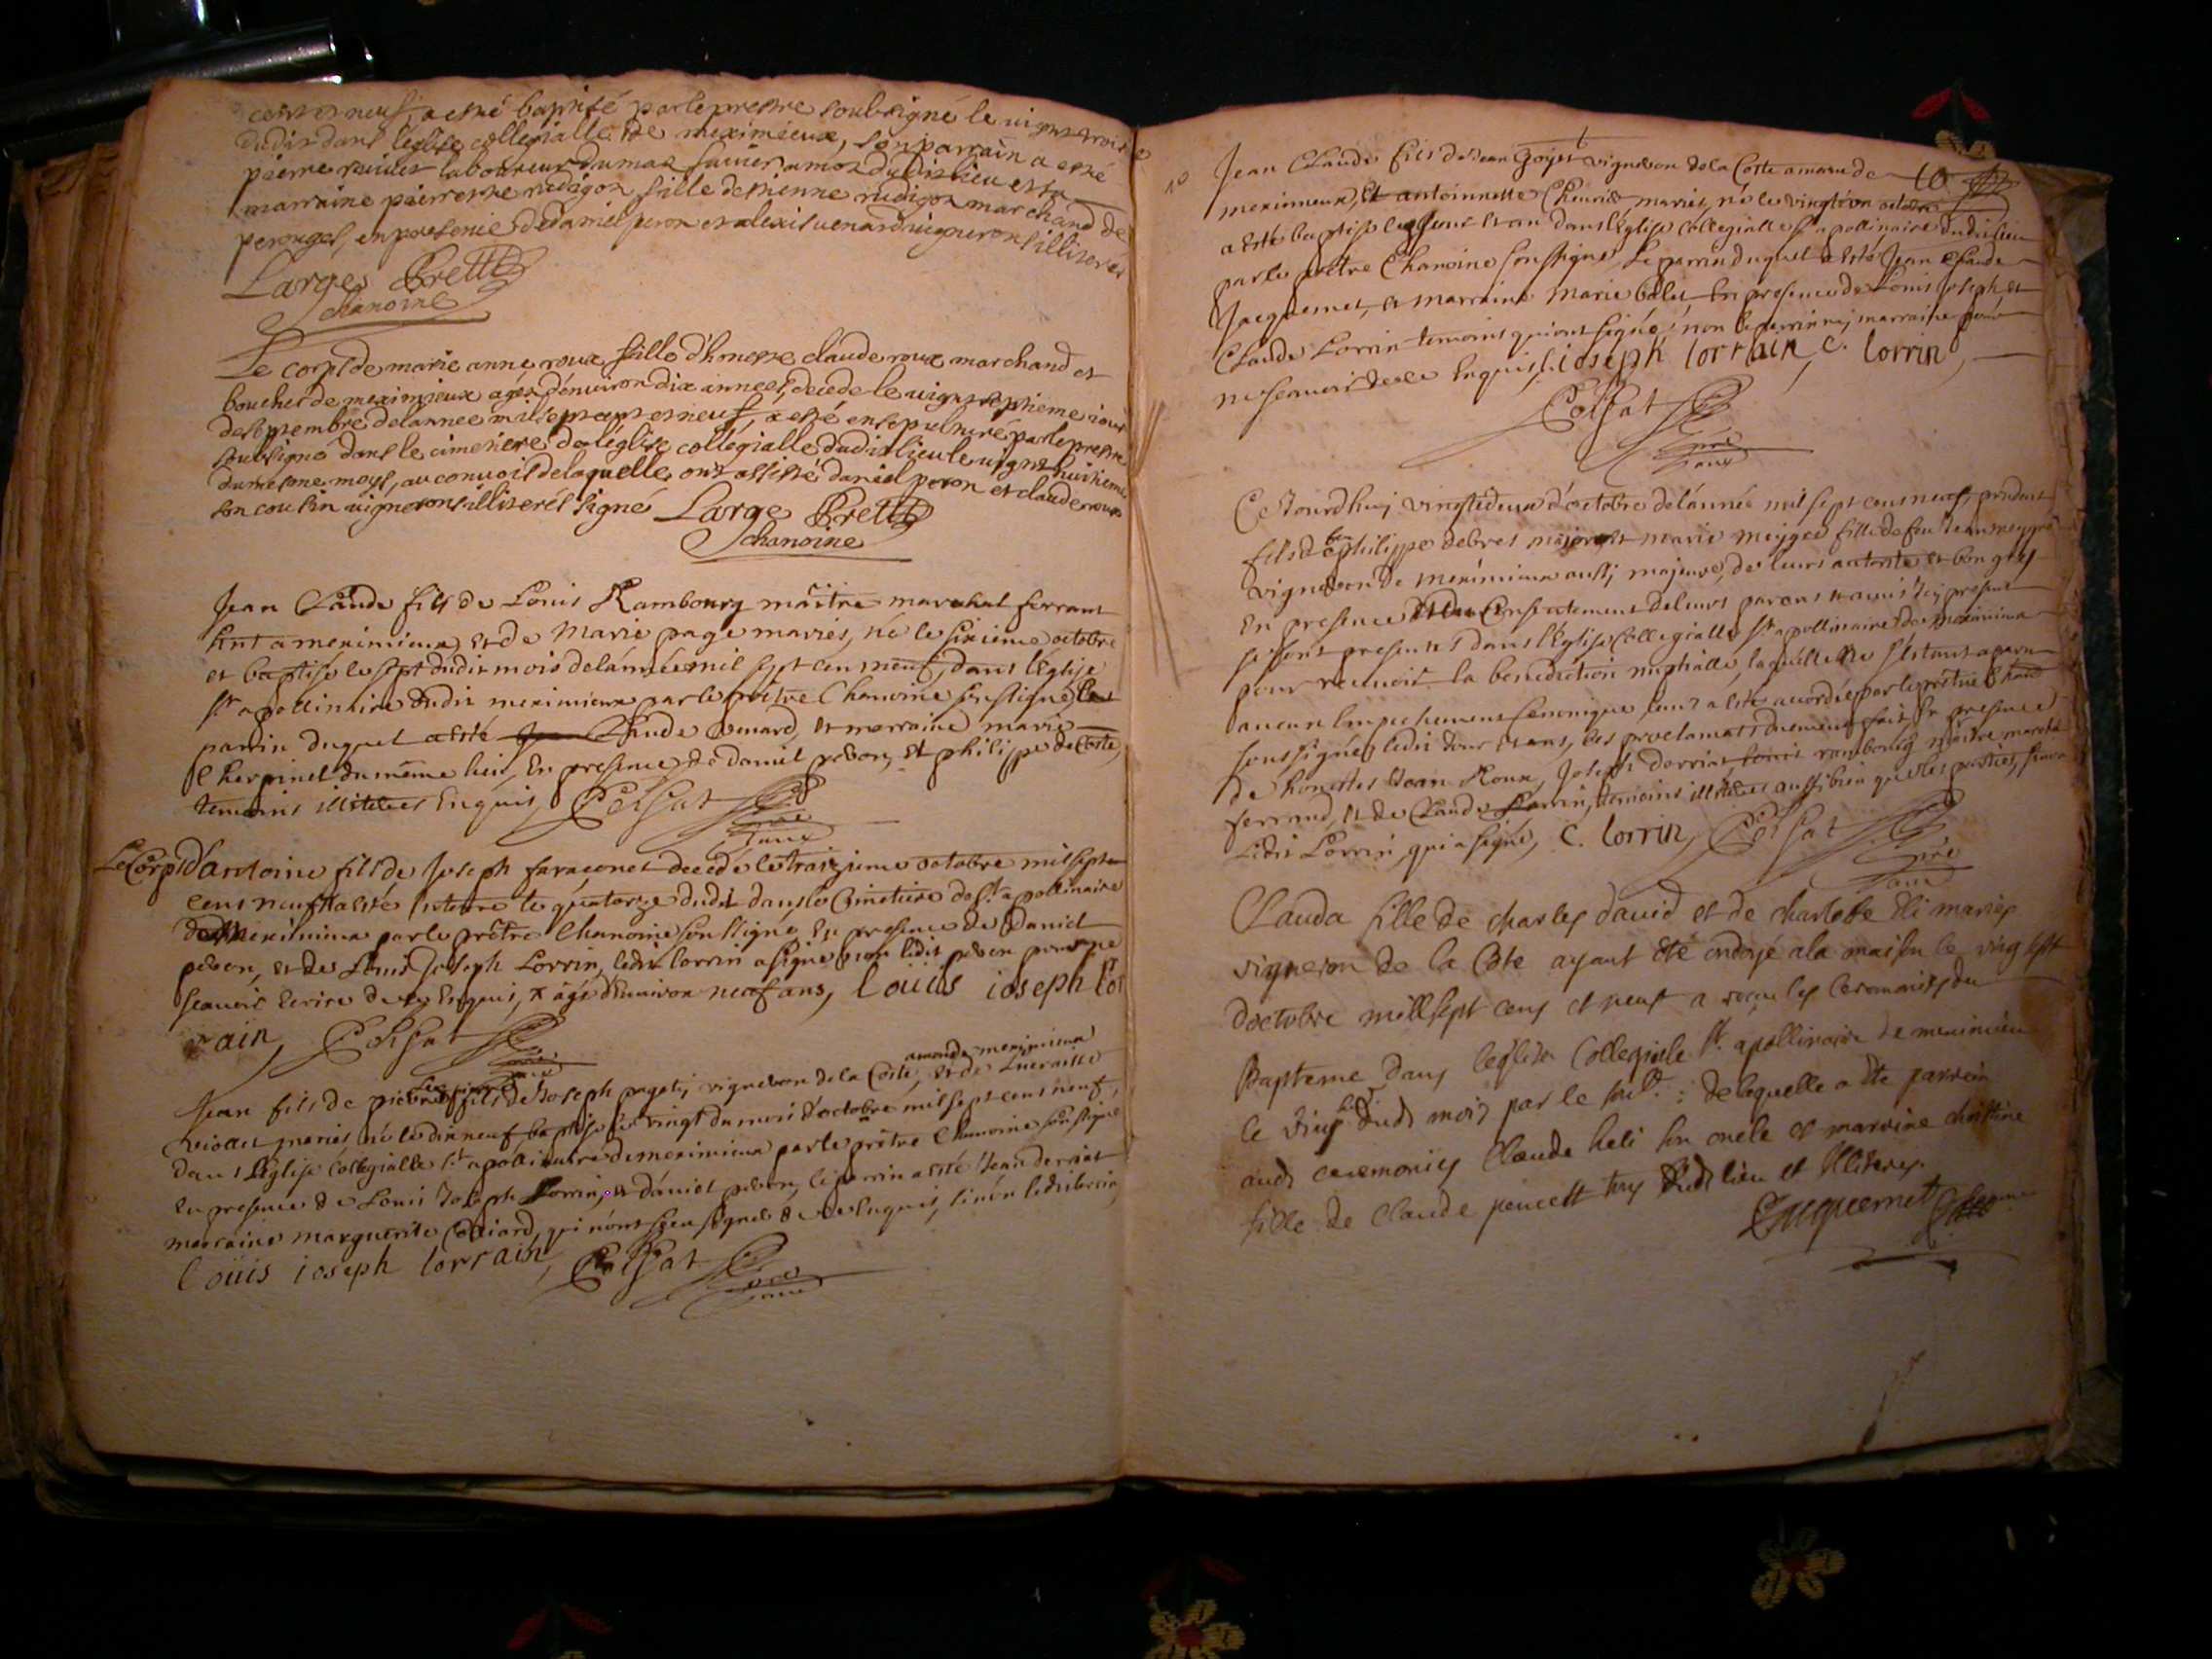 cent et neuf, a esté baptisé par le prestre soubsigné le vignt trois
dudit dans l'eglise collegialle de meximieux, son parrain a esté
pierre laboureur du mas amon dudit lieu et sa
marraine pierrette rudigoz fille d'etienne rudigoz marchand de
perouges, en presence de daniel peron et alexis venard vigneron illiterés
Large Prett
chanoine
Le corps de marie anne roux fille d'honeste claude roux marchand et
boucher de meximieux agée d'environ dix années, decede le vignt septieme jour
de septembre de l'annee mil sept cent et neuf, a esté ensepulturé par le prestre
soubsigné dans le cimetiere de l'église collegialle dudit lieu le vignt huitieme
du mesme moys, au convoit de laquelle ont assisté daniel peron et claude roux
son cousin vignerons illiterés signé Large Prett
chanoine
Jean Claude fils de Louis Rambourg maître marechal ferrant
a meximieux et de Marie page mariés, né le sixième octobre
et baptisé le sept dudit mois de l'année mil sept cent neuf, dans l'Église
St apollinaire dudit meximieux par le prêtre Chanoine soussigné le
parrin duquel a esté Claude venard, et marraine marie
Cherpinel du même lieu, En presence de daniel peron, et philippe de Coste,
temoins illiterés Enquis, Polsat
Le Corps d'antoine fils de Joseph favaconet decedé le traizieme octobre mil sept
cent neuf a esté enterré le quatorze dudit dans le Cimetiere de St apollinaire
de Meximieux par le prêtre Chanoine soussigné En presence de Daniel
peron, et de Louis Joseph Lorrin, ledit lorrin a signé non ledit peron pour ne
scavoir Ecrire de ce Enquis, x âgé d'Environ neuf ans, Louis ioseph lor
rain, Polsat
amond de meximieux
Jean fils de pierre fils de Joseph pagety vigneron de la Coste, et de
viollet mariés né le dix neuf, baptisé le vingt du mois d'octobre mil sept cent neuf,
dans l'Église Collegialle St apollinaire de meximieux par le prêtre Chanoine soussigné
en presence de Louis Joseph Lorrin, et daniel peron, le parrin a esté Jean derriat
marraine marguerite Colliard, qui n'ont sceu signer de ce Enquis, sinon ledit lorrin,
louis ioseph lorrain, Polsat
10
Jean Claude fils de Jean Goyet vigneron de la Coste amond de
meximieux, Et antoinnette Chenevier mariés, né le vingt et un octobre
a esté baptisé les jour et an dans l'Église Collegialle St apollinaire dudit lieu
par le prêtre Chanoine soussigné Le parrin duquel a esté Jean Claude
Jacquemet, et marraine Marie bolet En presence de Louis Joseph, et
Claude Lorrin temoins qui ont signé, non le parrin ny marraine pour
ne scavoir de ce Enquis, l. ioseph lorrain, c. lorrin,
Polsat
Ce Jourdhuy vingt deux d'octobre de l'année mil sept cent neuf,
fils de feu philippe debret majeur et marie meyget fille de feu Jean meyget
vigneron de meximieux aussy majeure, de leurs autorité et bon gré
En presence et du Consentement de leurs parens et amis icy present
se sont presentés dans l'Église Collegialle St apollinaire de Meximieux
pour recevoir la benediction nuptialle, laquelle ne s'estant apparu
aucun Empechement Canonique leur a esté accordée par le prêtre Chanoine
soussigné ledit Jour et ans, les proclamats duement fait, En presence
de honestes Jean Roux, Joseph derriat, louis rambourg maitre marechal
ferrand, et de Claude Lorrin, temoins illiterés aussi bien que les parties, sinon
ledit Lorrin, qui a signé, C. lorrin, Polsat
Clauda fille de charles david et de charlotte Eli mariés
vigneron de la Côte ayant été ondoyé a la maison le vingt sept
d'octobre mill sept cens et neuf a reçu les Ceremonies du
Bapteme dans l'eglise Collegiale St apollinaire de meximieux
le vingt dudt mois par le : de laquelle a été parrain
audt ceremonies Claude heli son oncle et marraine christine
fille de Claude pencett tous dudt lieu et illiteres.
Jacquemet